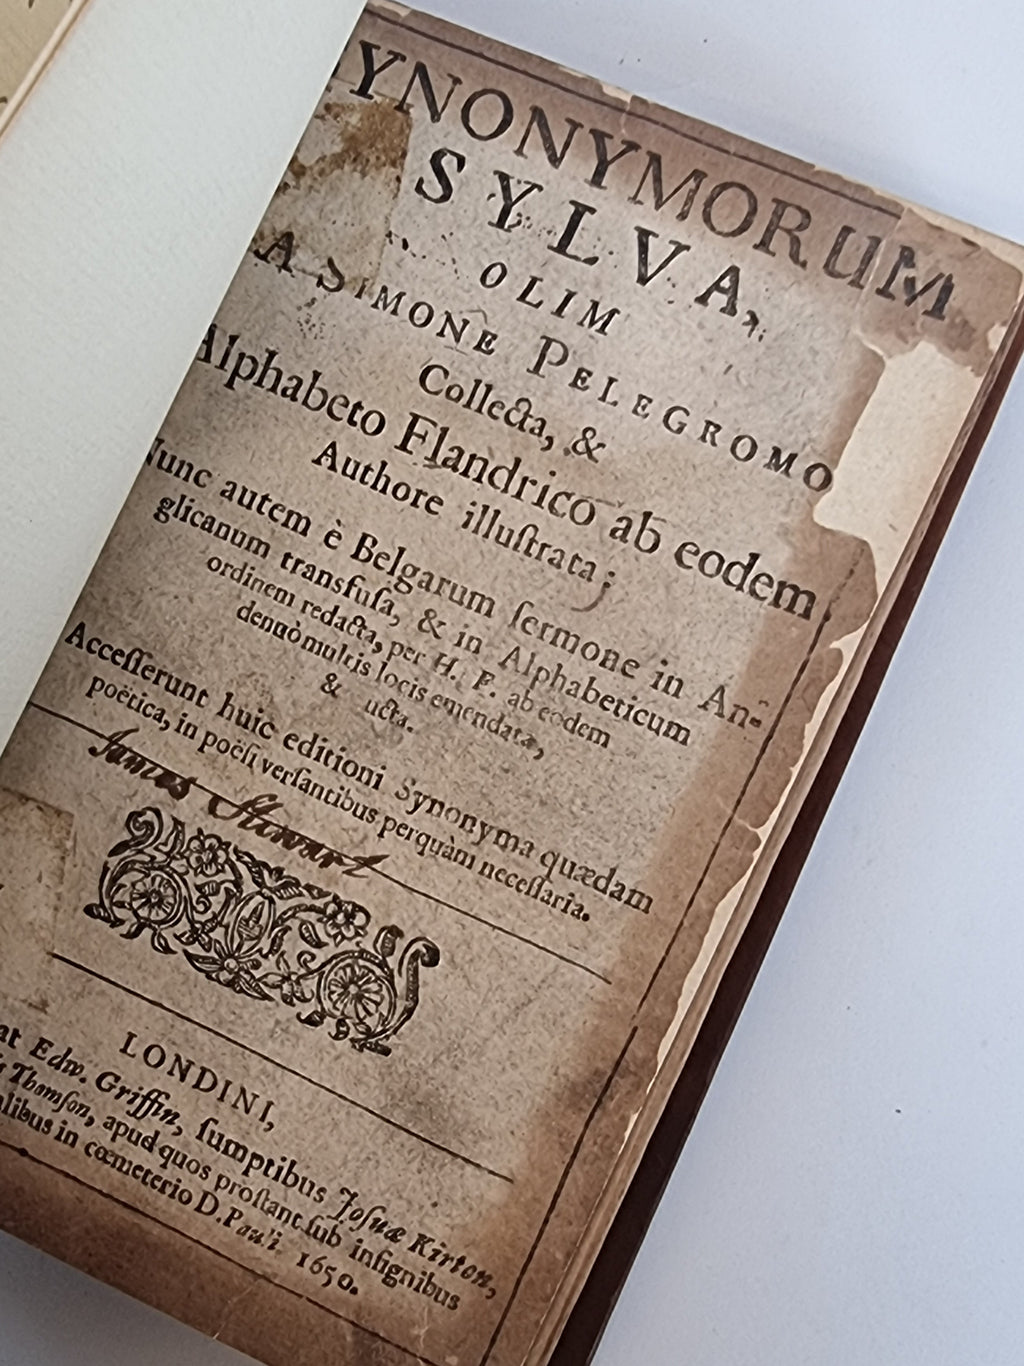 YNONYMORUM
SYLVA,
OLIM
A SIMONE PELEGROMO
Collecta, &
Alphabeto Flandrico ab eodem
Authore illuſtrata;
Nunc autem è Belgarum ſermone in An-
glicanum transfuſa, & in Alphabeticum
ordinem redacta, per H. F. ab eodem
denuò multis locis emendata,
& ucta.
Acceſſerunt huic editioni Synonyma quædam
poëtica, in poëſi verſantibus perquàm neceſſaria.
James Stewart
LONDINI,
at Edw. Griffin, ſumptibus Joſuæ Kirton,
Thomſon, apud quos proſtant ſub inſignibus
alibus in cœmeterio D. Pauli 1650.